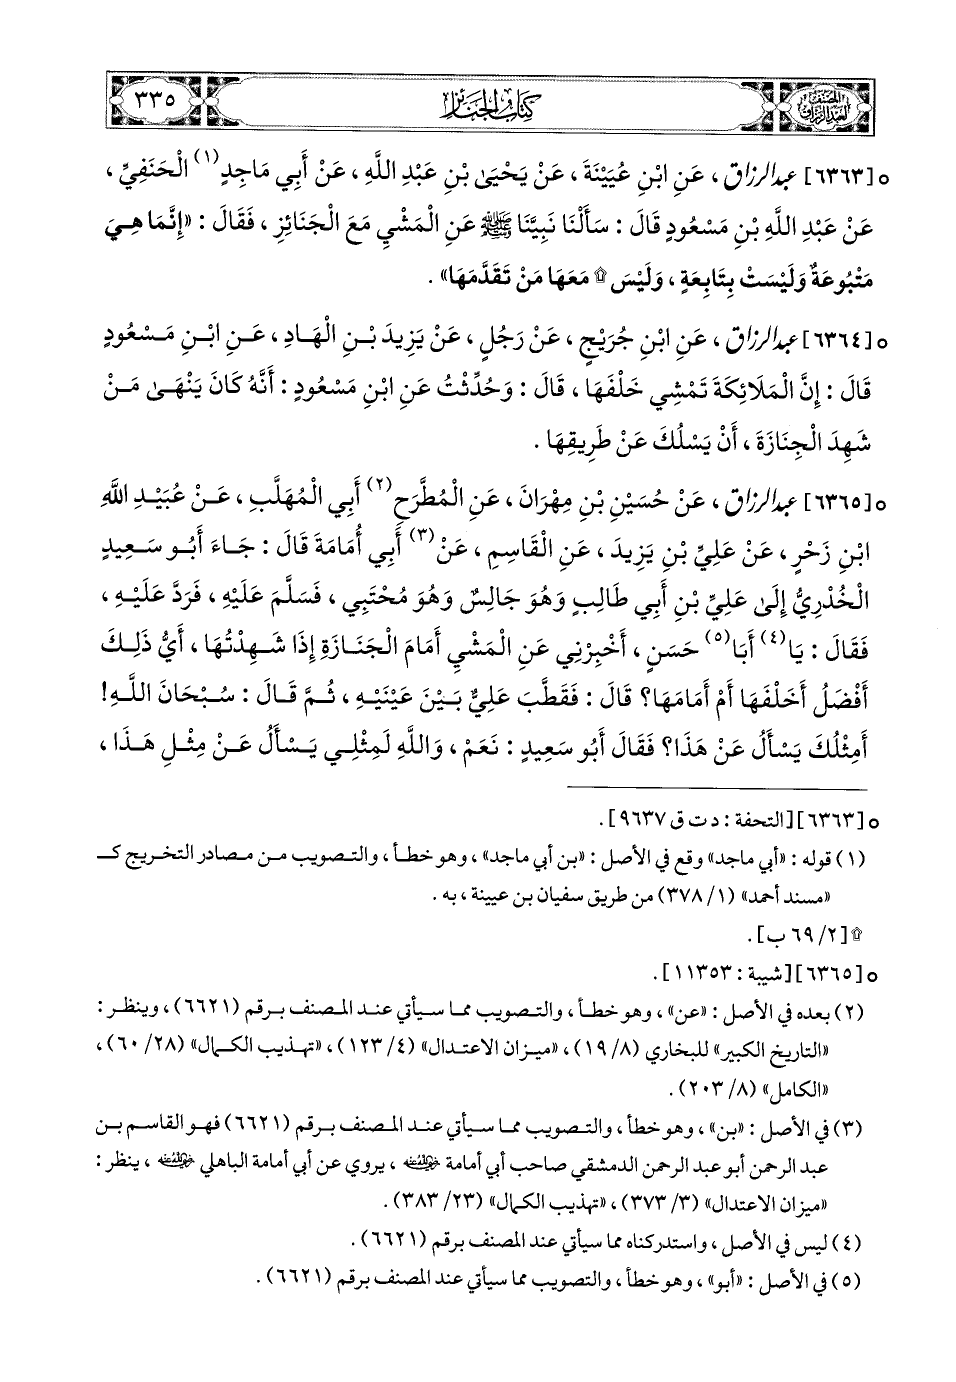 المصنف
لعبد الرزاق
كتاب الجنائز
٣٣٥
٥ [٦٣٦٣] عبد الرزاق ، عَنِ ابْنِ عُيَيْنَةَ ، عَنْ يَحْيَى بْنِ عَبْدِ اللَّهِ ، عَنْ أَبِي مَاجِدٍ (١) الْحَنَفِيِّ ،
عَنْ عَبْدِ اللَّهِ بْنِ مَسْعُودٍ قَالَ : سَأَلْنَا نَبِيَّنَا ﷺ عَنِ الْمَشْيِ مَعَ الْجَنَائِزِ ، فَقَالَ : «إِنَّمَا هِيَ
مَتْبُوعَةٌ وَلَيْسَتْ بِتَابِعَةٍ ، وَلَيْسَ ۩ مَعَهَا مَنْ تَقَدَّمَهَا» .
٥ [٦٣٦٤] عبد الرزاق ، عَنِ ابْنِ جُرَيْجٍ ، عَنْ رَجُلٍ ، عَنْ يَزِيدَ بْنِ الْهَادِ ، عَنِ ابْنِ مَسْعُودٍ
قَالَ : إِنَّ الْمَلَائِكَةَ تَمْشِي خَلْفَهَا ، قَالَ : وَحُدِّثْتُ عَنِ ابْنِ مَسْعُودٍ : أَنَّهُ كَانَ يَنْهَى مَنْ
شَهِدَ الْجِنَازَةَ ، أَنْ يَسْلُكَ عَنْ طَرِيقِهَا .
٥ [٦٣٦٥] عبد الرزاق ، عَنْ حُسَيْنِ بْنِ مِهْرَانَ ، عَنِ الْمُطَّرَحِ (٢) أَبِي الْمُهَلَّبِ ، عَنْ عُبَيْدِ اللَّهِ
ابْنِ زَحْرٍ ، عَنْ عَلِيِّ بْنِ يَزِيدَ ، عَنِ الْقَاسِمِ ، عَنْ (٣) أَبِي أُمَامَةَ قَالَ : جَاءَ أَبُو سَعِيدٍ
الْخُدْرِيُّ إِلَى عَلِيِّ بْنِ أَبِي طَالِبٍ وَهُوَ جَالِسٌ وَهُوَ مُحْتَبِي ، فَسَلَّمَ عَلَيْهِ ، فَرَدَّ عَلَيْهِ ،
فَقَالَ : يَا (٤) أَبَا (٥) حَسَنٍ ، أَخْبِرْنِي عَنِ الْمَشْيِ أَمَامَ الْجَنَازَةِ إِذَا شَهِدْتُهَا ، أَيُّ ذَلِكَ
أَفْضَلُ أَخَلْفَهَا أَمْ أَمَامَهَا؟ قَالَ : فَقَطَّبَ عَلِيٌّ بَيْنَ عَيْنَيْهِ ، ثُمَّ قَالَ : سُبْحَانَ اللَّهِ!
أَمِثْلُكَ يَسْأَلُ عَنْ هَذَا؟ فَقَالَ أَبُو سَعِيدٍ : نَعَمْ ، وَاللَّهِ لَمِثْلِي يَسْأَلُ عَنْ مِثْلِ هَذَا ،
٥ [٦٣٦٣] [التحفة : د ت ق ٩٦٣٧] .
(١) قوله : «أبي ماجد» وقع في الأصل : «بن أبي ماجد» ، وهو خطأ ، والتصويب من مصادر التخريج كـ
«مسند أحمد» (١/ ٣٧٨) من طريق سفيان بن عيينة ، به .
۩ [٢/ ٦٩ ب] .
٥ [٦٣٦٥] [شيبة : ١١٣٥٣] .
(٢) بعده في الأصل : «عن» ، وهو خطأ ، والتصويب مما سيأتي عند المصنف برقم (٦٦٢١) ، وينظر :
«التاريخ الكبير» للبخاري (٨/ ١٩) ، «ميزان الاعتدال» (٤/ ١٢٣) ، «تهذيب الكمال» (٢٨/ ٦٠) ،
«الكامل» (٨/ ٢٠٣) .
(٣) في الأصل : «بن» ، وهو خطأ ، والتصويب مما سيأتي عند المصنف برقم (٦٦٢١) فهو القاسم بن
عبد الرحمن أبو عبد الرحمن الدمشقي صاحب أبي أمامة رضي الله عنه ، يروي عن أبي أمامة الباهلي رضي الله عنه ، ينظر :
«ميزان الاعتدال» (٣/ ٣٧٣) ، «تهذيب الكمال» (٢٣/ ٣٨٣) .
(٤) ليس في الأصل ، واستدركناه مما سيأتي عند المصنف برقم (٦٦٢١) .
(٥) في الأصل : «أبو» ، وهو خطأ ، والتصويب مما سيأتي عند المصنف برقم (٦٦٢١) .